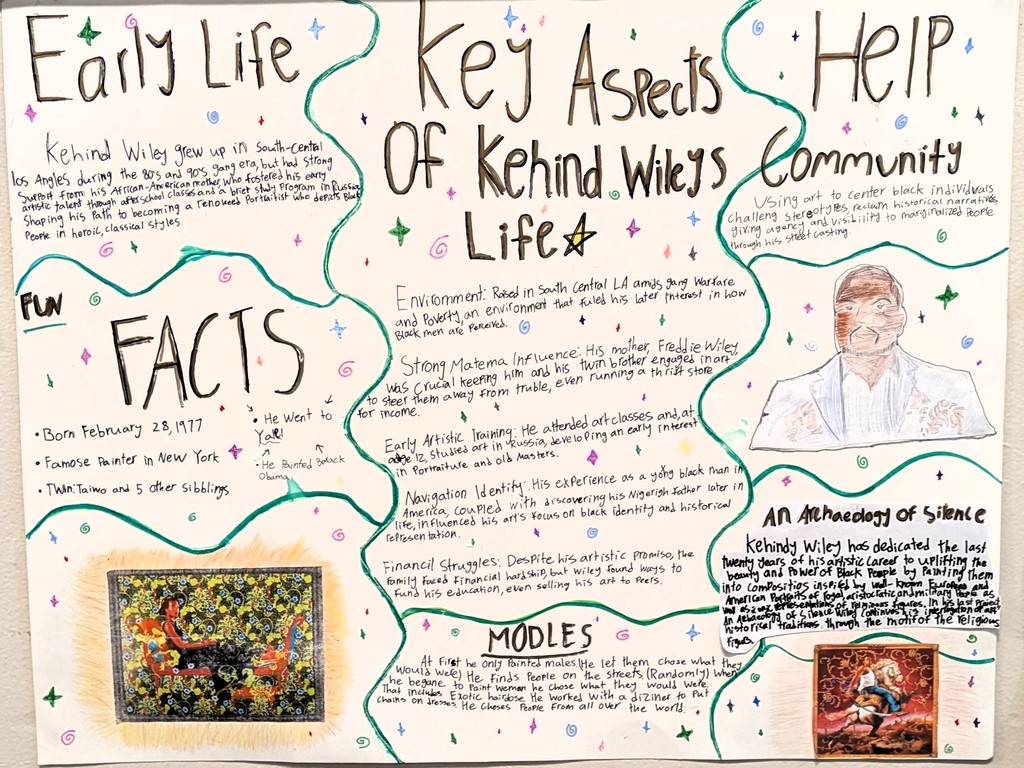 Early Life
Kehind Wiley grew up in South-Central
los Angles during the 80's and 90's gang era, but had Strong
Support from his African-American mother, who fostered his early
artistic talent through afterschool classes and a brief study Program in Russia,
Shaping his Path to becoming a renoweed Portraitist who depicts Black
People in heroic, classical styles.
FUN
FACTS
• Born February 28, 1977
• Famose Painter in New York
• TWIN: Taiwo and 5 other sibblings
• He Went to
Yale!
• He Painted Barack
Obama
Key Aspects
Of Kehind Wileys
Life
Environment: Raised in South Central LA amids gang Warfare
and Poverty, an environment that fuled his later interest in how
Black men are Perceived.
Strong Materna Influence: His mother, Freddie Wiley,
was Crucial keeping him and his twin brother engaged in art,
to steer them away from truble, even running a thrift store
for income.
Early Artistic Training: He attended art classes and, at
age 12, studied art in Russia, developing an early interest
in Portraiture and old Masters.
Navigation Identity: His experience as a yong black man in
America, coupled with discovering his Nigerigh father later in
life, influenced his art's focus on black identity and historical
representation.
Financil Struggles: Despite his artistic promiso, the
family faced financial hardship, but wiley found ways to
fund his education, even selling his art to Peers.
MODLES
At first he only Painted males, He let them chose what they
would were, He finds People on the streets, (Randomly) When
he began to Paint woman he chose what they would were.
That includes Exotic hairdose. He worked with a diziner to Put
chains on dresses. He choses People from all over the world.
Help
Community
Using art to center black individuals
challeng stereotypes, reclaim historical narratives,
giving agency and visibility to marginalized People
through his street casting.
An Archaeology of Silence
Kehindy Wiley has dedicated the last
twenty years of his artistic career to uplifting the
beauty and Power of Black People by Painting them
into compositions inspired by well-known European and
American Portraits of royal, aristocratic and military People as
well as representations of religious figures. In his last Project
An Archaeology of Silence Wiley continues his investigation of art
historical traditions, through the motif of the religious
figure.